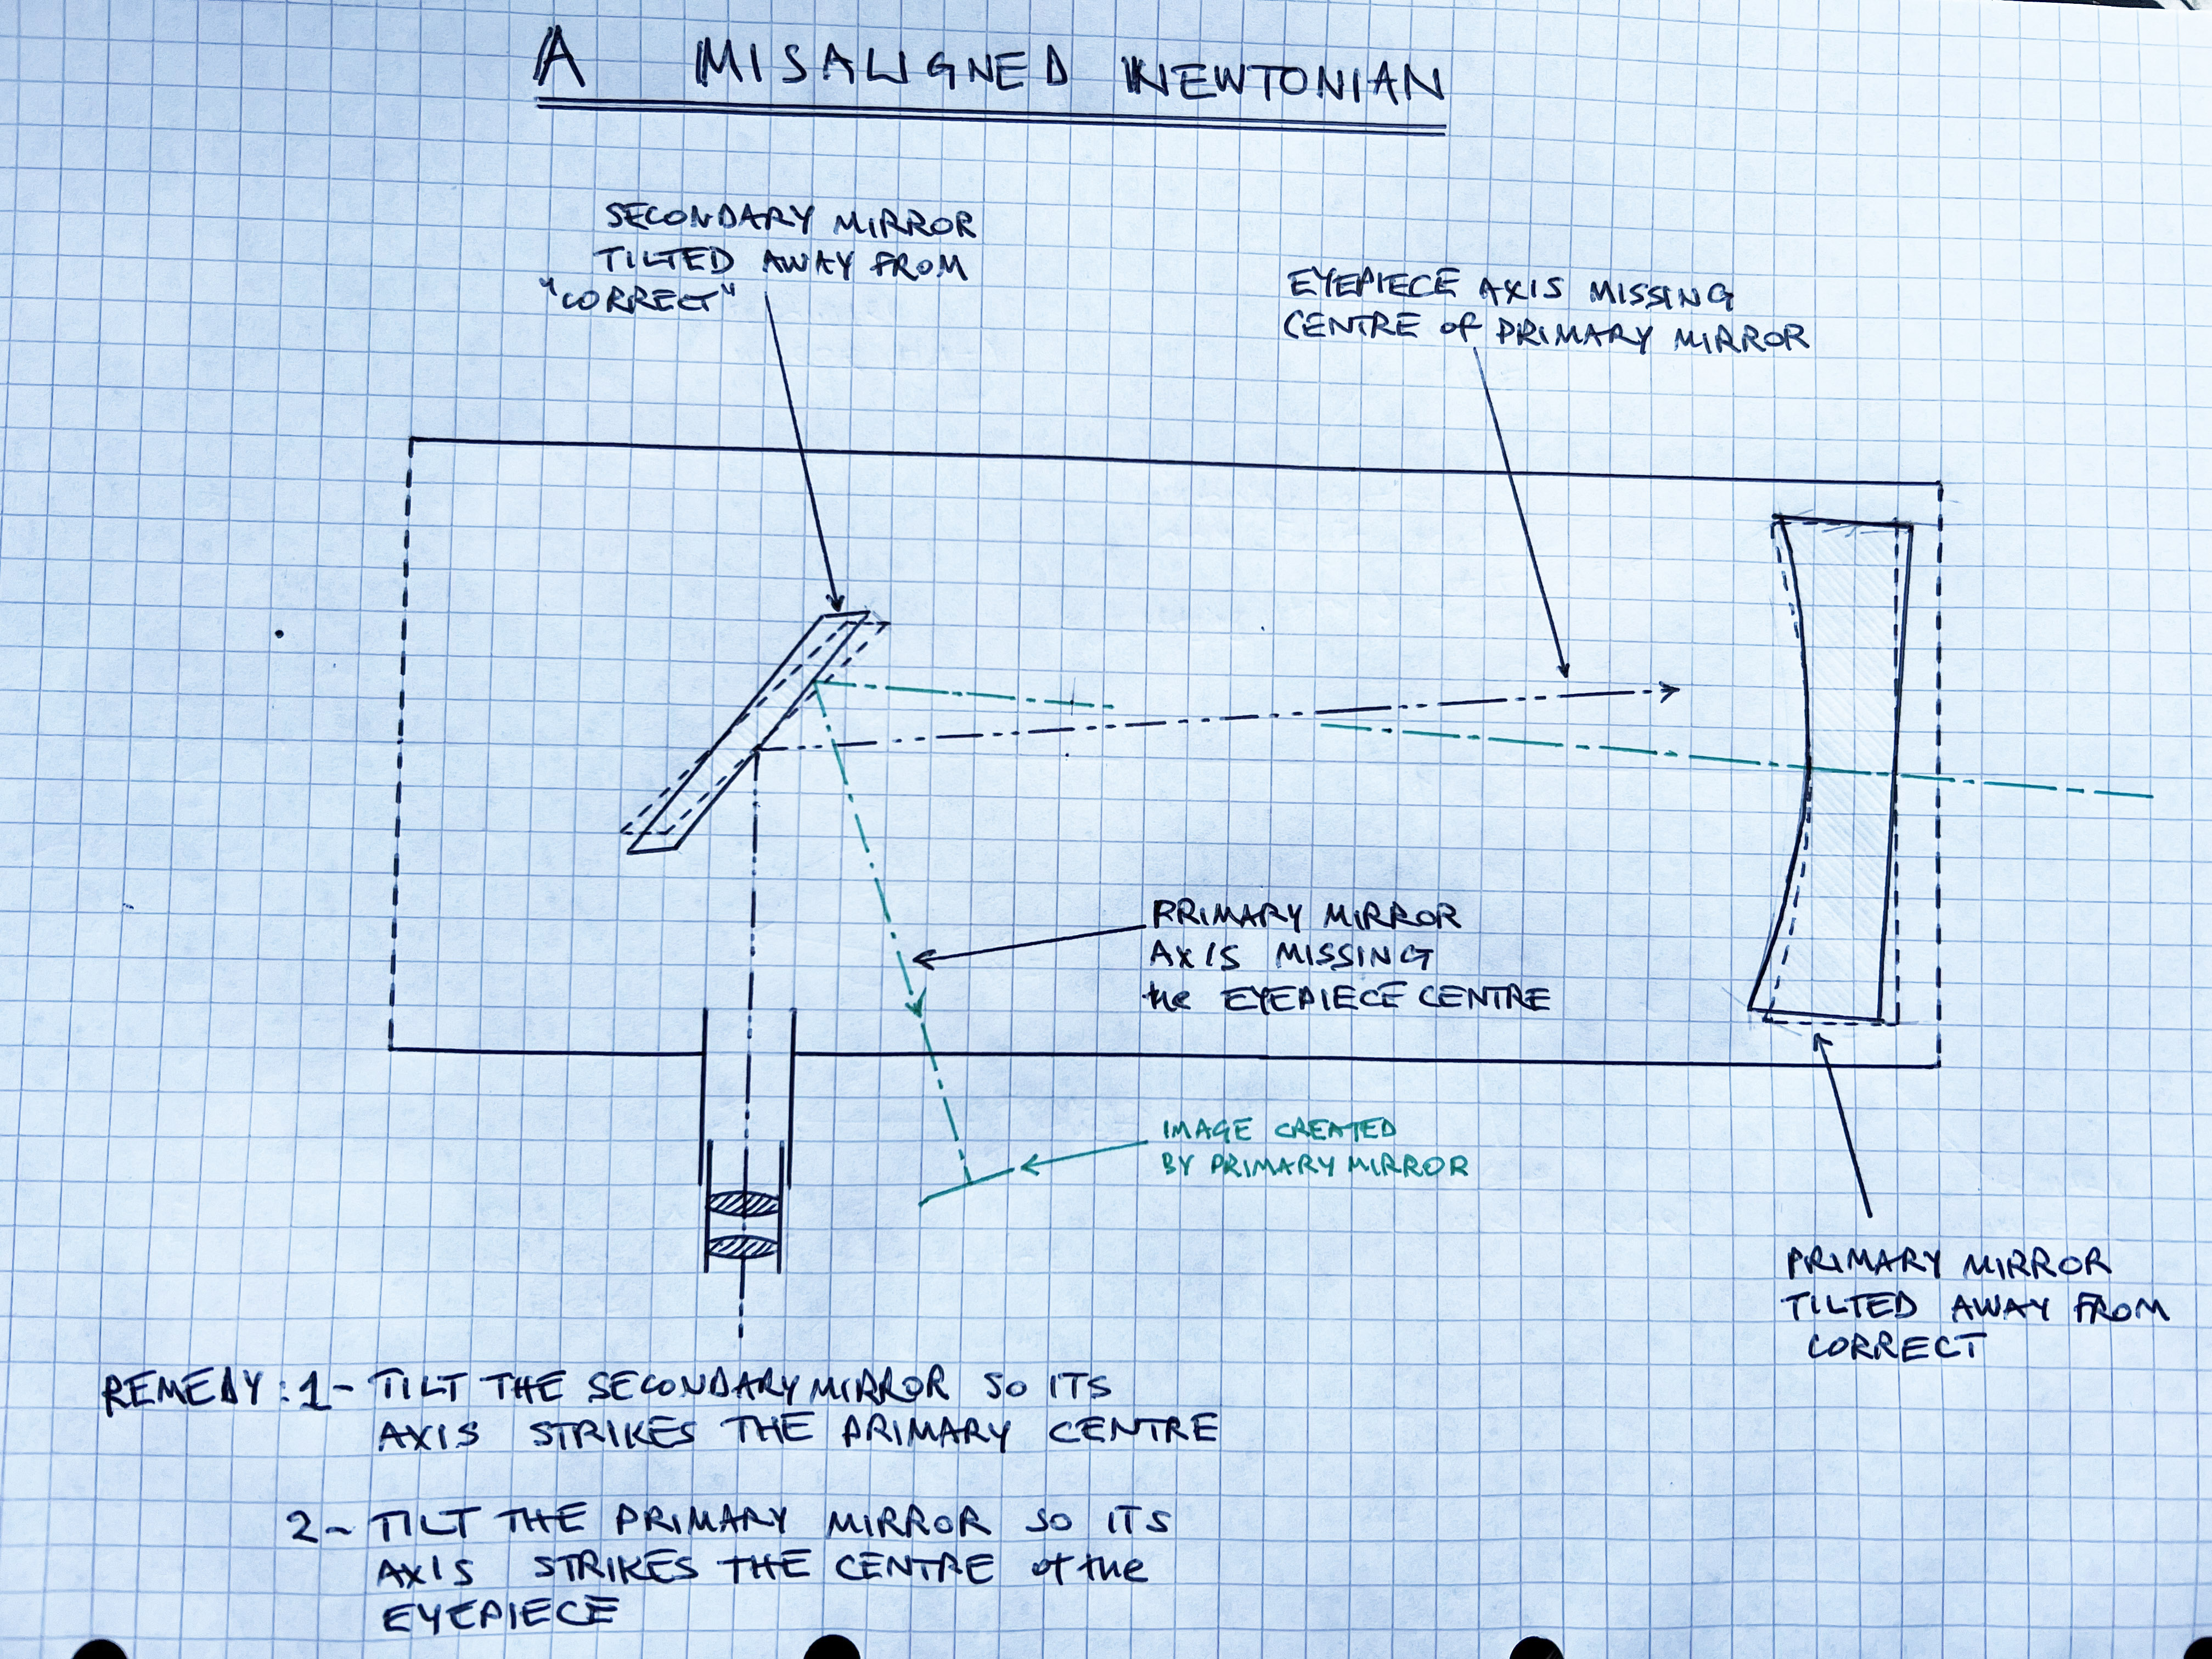 A MISALIGNED NEWTONIAN
SECONDARY MIRROR
TILTED AWAY FROM
"CORRECT"
EYEPIECE AXIS MISSING
CENTRE of PRIMARY MIRROR
PRIMARY MIRROR
AXIS MISSING
the EYEPIECE CENTRE
IMAGE CREATED
BY PRIMARY MIRROR
PRIMARY MIRROR
TILTED AWAY FROM
CORRECT
REMEDY: 1- TILT THE SECONDARY MIRROR SO ITS
AXIS STRIKES THE PRIMARY CENTRE
2- TILT THE PRIMARY MIRROR SO ITS
AXIS STRIKES THE CENTRE of the
EYEPIECE